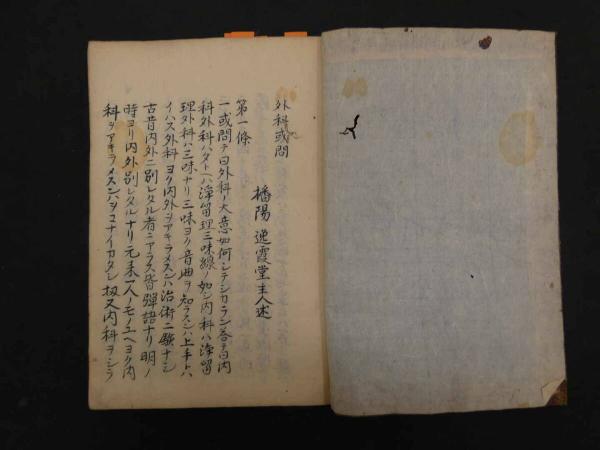 外科或問
播陽 逸霞堂主人述
第一條
一或問テ曰外科ノ大意如何シテシカラン答テ曰内
科外科ハタトヘハ浄留理三味線ノ如シ内科ハ浄留
理外科ハ三味ナリ三味ヨク音曲ヲ知ラスンハ上手トハ
イハス外科ヨク内外ヲアキラメスンハ治術ニ験ナシ
古昔内外ニ別レタル者ニアラス皆弾語ナリ明ノ
時ヨリ内外別レタルナリ元来一人ノモノユヘヨク内
科ヲアキラメスンハヲコナイカタシ扨又内科ヲシラ